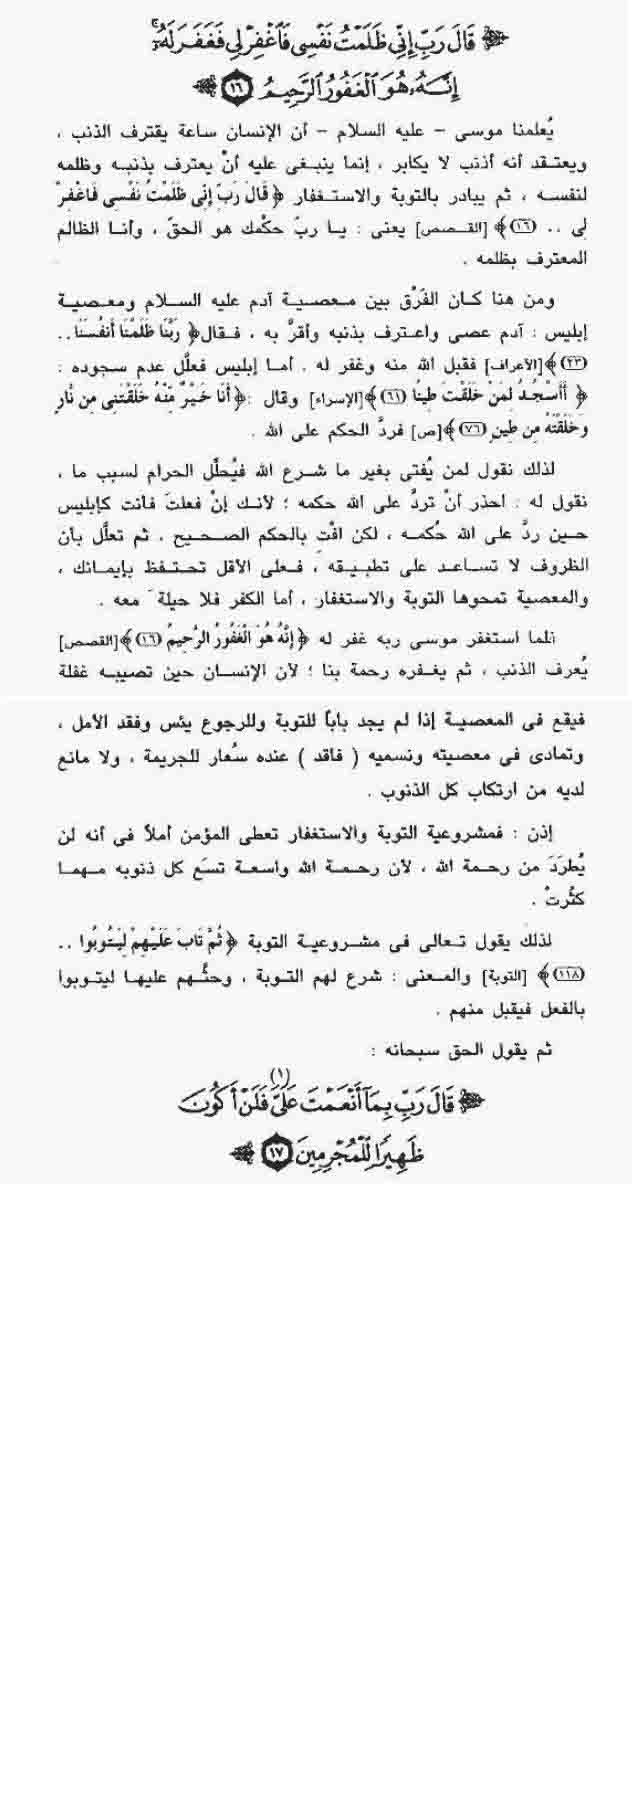 ﴿ قَالَ رَبِّ إِنِّي ظَلَمْتُ نَفْسِي فَاغْفِرْ لِي فَغَفَرَ لَهُ ۚ
إِنَّهُ هُوَ الْغَفُورُ الرَّحِيمُ ١٦ ﴾
يُعلمنا موسى - عليه السلام - أن الإنسان ساعة يقترف الذنب ،
ويعتقد أنه أذنب لا يكابر ، إنما ينبغى عليه أنْ يعترف بذنبه وظلمه
لنفسه ، ثم يبادر بالتوبة والاستغفار ﴿ قَالَ رَبِّ إِنِّى ظَلَمْتُ نَفْسِى فَاغْفِرْ
لِى .. (١٦)﴾ [القصص] يعنى : يا ربّ حكْمك هو الحقّ ، وأنا الظالم
المعترف بظلمه .
ومن هنا كان الفَرْق بين معصية آدم عليه السلام ومعصية
إبليس : آدم عصى واعترف بذنبه وأقرَّ به ، فقال﴿ رَبَّنَا ظَلَمْنَا أَنفُسَنَا..
(٢٣)﴾[الأعراف] فقبل الله منه وغفر له . أما إبليس فعلَّل عدم سجوده :
﴿ أَأَسْجُدُ لِمَنْ خَلَقْتَ طِينًا (٦١)﴾[الإسراء] وقال :﴿ أَنَا خَيْرٌ مِّنْهُ خَلَقْتَنِى مِن نَّارٍ
وَخَلَقْتَهُ مِن طِينٍ (٧٦)﴾[ص] فردَّ الحكم على الله .
لذلك نقول لمن يُفتى بغير ما شرع الله فيُحلِّل الحرام لسبب ما ،
نقول له : احذر أنْ تردَّ على الله حكمه ؛ لأنك إنْ فعلتَ فأنت كإبليس
حين ردَّ على الله حُكمه ، لكن افْتِ بالحكم الصحيح ، ثم تعلَّل بأن
الظروف لا تساعد على تطبيقه ، فعلى الأقل تحتفظ بإيمانك ،
والمعصية تمحوها التوبة والاستغفار ، أما الكفر فلا حيلةَ معه .
فلما استغفر موسى ربه غفر له ﴿ إِنَّهُ هُوَ الْغَفُورُ الرَّحِيمُ (١٦)﴾[القصص]
يُعرف الذنب ، ثم يغفره رحمة بنا ؛ لأن الإنسان حين تصيبه غفلة
فيقع فى المعصية إذا لم يجد باباً للتوبة وللرجوع يئس وفقد الأمل ،
وتمادى فى معصيته ونسميه ( فاقد ) عنده سُعار للجريمة ، ولا مانع
لديه من ارتكاب كل الذنوب .
إذن : فمشروعية التوبة والاستغفار تعطى المؤمن أملاً فى أنه لن
يُطرَدَ من رحمة الله ، لأن رحمة الله واسعة تسَع كل ذنوبه مهما
كثُرتْ .
لذلك يقول تعالى فى مشروعية التوبة ﴿ ثُمَّ تَابَ عَلَيْهِمْ لِيَتُوبُوا ..
(١١٨)﴾ [التوبة] والمعنى : شرع لهم التوبة ، وحثَّهم عليها ليتوبوا
بالفعل فيقبل منهم .
ثم يقول الحق سبحانه :
﴿ قَالَ رَبِّ بِمَا أَنْعَمْتَ عَلَيَّ (١) فَلَنْ أَكُونَ
ظَهِيرًا لِّلْمُجْرِمِينَ ١٧ ﴾